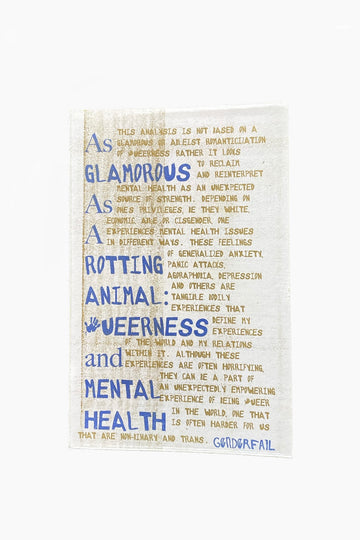 As
GLAMOROUS
As
A
ROTTING
ANIMAL:
UEERNESS
and
MENTAL
HEALTH
THIS ANALYSIS IS NOT BASED ON A
GLAMOROUS OR ABLEIST ROMANTICIZATION
OF UEERNESS RATHER IT LOOKS
TO RECLAIM
AND REINTERPRET
MENTAL HEALTH AS AN UNEXPECTED
SOURCE OF STRENGTH. DEPENDING ON
ONE'S PRIVILEGES, IE THEY WHITE,
ECONOMIC ABLE OR CISGENDER ONE
EXPERIENCES MENTAL HEALTH ISSUES
IN DIFFERENT WAYS. THESE FEELINGS
OF GENERALIZED ANXIETY,
PANIC ATTACKS,
AGORAPHOBIA, DEPRESSION
AND OTHERS ARE
TANGIBLE BODILY
EXPERIENCES THAT
DEFINE MY
EXPERIENCES
OF THE WORLD AND MY RELATIONS
WITHIN IT. ALTHOUGH THESE
EXPERIENCES ARE OFTEN HORRIFYING,
THEY CAN BE A PART OF
AN UNEXPECTEDLY EMPOWERING
EXPERIENCE OF BEING UEER
IN THE WORLD, ONE THAT
IS OFTEN HARDER FOR US
THAT ARE NON-BINARY AND TRANS.
GENDERFAIL